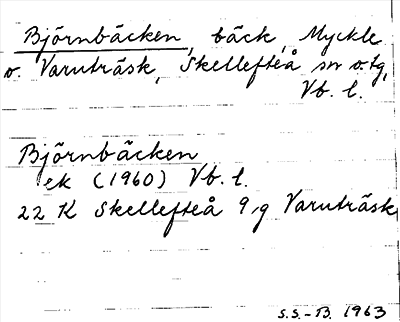 Björnbäcken, bäck, Myckle
o. Varuträsk, Skellefteå sn o. tg,
Vb. l.
Björnbäcken
ek (1960) Vb. l.
22 K Skellefteå 9,g Varuträsk
S.S.-B. 1963